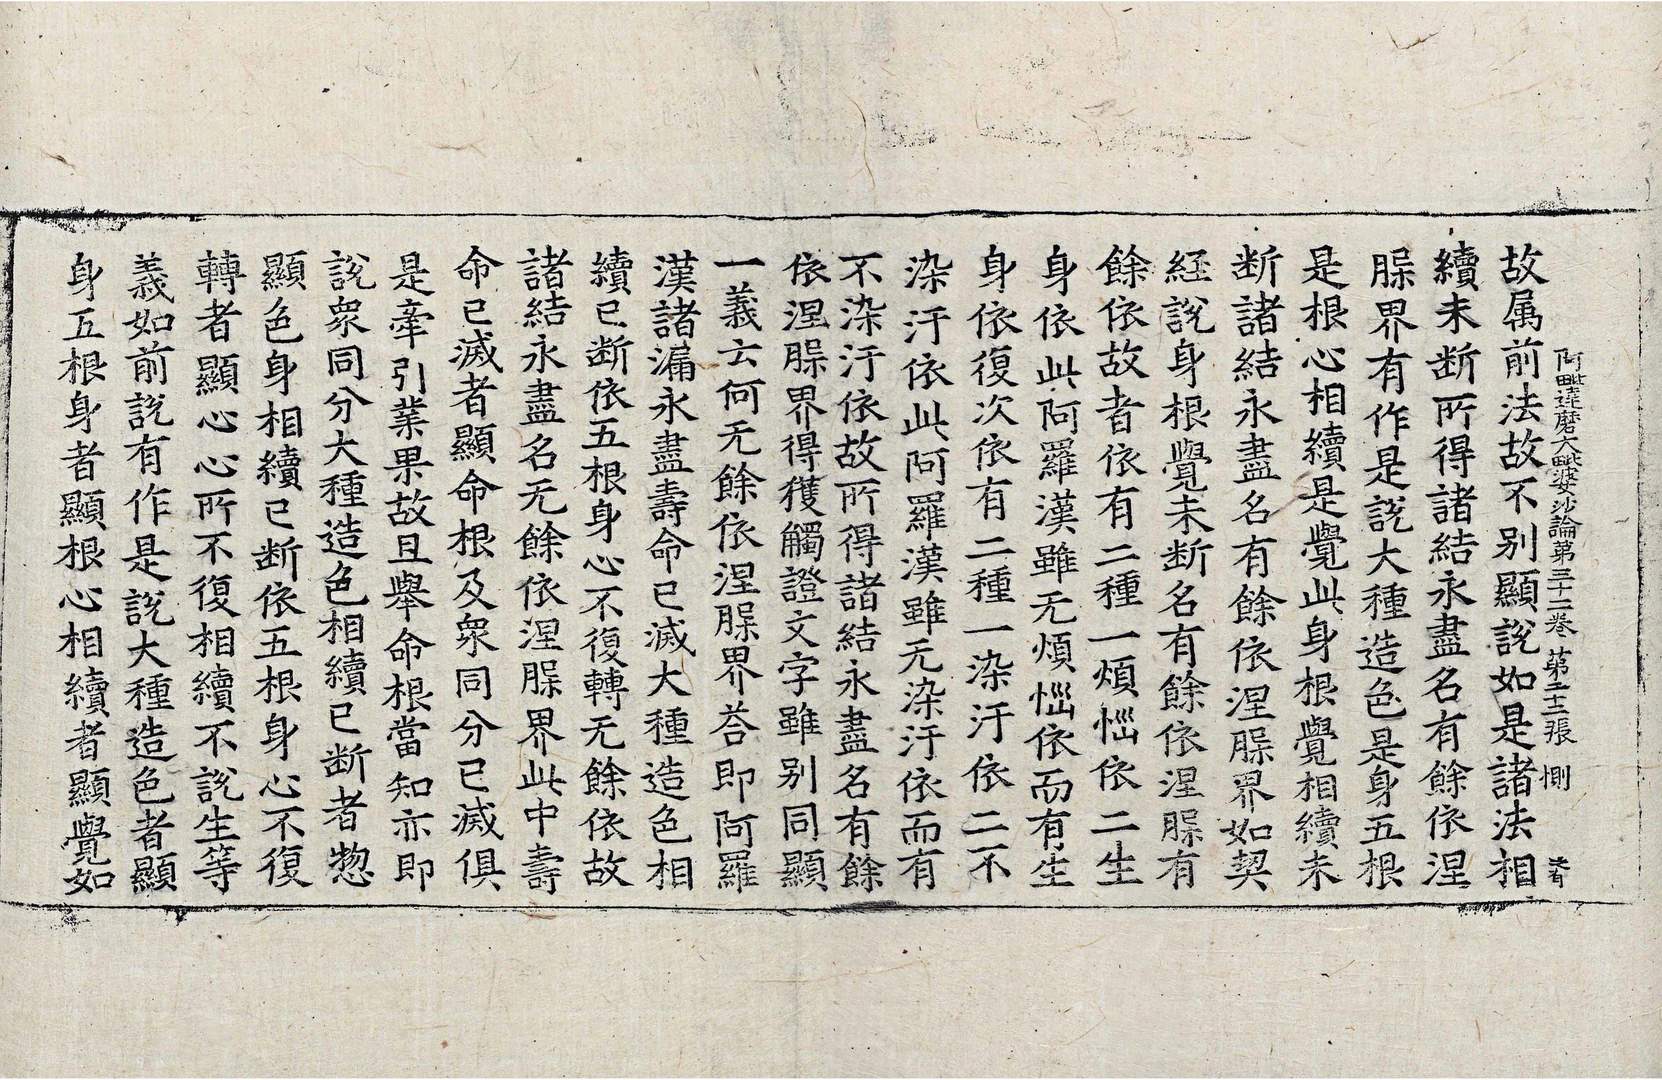 阿毗達磨大毗婆沙論第三十二卷 第二十三張 惻
故属前法故不别顯說如是諸法相
續未断所得諸結永盡名有餘依涅
䐉界有作是說大種造色是身五根
是根心相續是覺此身根覺相續未
断諸結永盡名有餘依涅䐉界如契
經說身根覺未断名有餘依涅䐉有
餘依故者依有二種一煩惱依二生
身依此阿羅漢雖无煩惱依而有生
身依復次依有二種一染汙依二不
染汙依此阿羅漢雖无染汙依而有
不染汙依故所得諸結永盡名有餘
依涅䐉界得獲觸證文字雖别同顯
一義云何无餘依涅䐉界荅即阿羅
漢諸漏永盡壽命已滅大種造色相
續已断依五根身心不復轉无餘依故
諸結永盡名无餘依涅䐉界此中壽
命已滅者顯命根及衆同分已滅俱
是牽引業果故且舉命根當知亦即
說衆同分大種造色相續已断者惣
顯色身相續已断依五根身心不復
轉者顯心心所不復相續不說生等
義如前說有作是說大種造色者顯
身五根身者顯根心相續者顯覺如